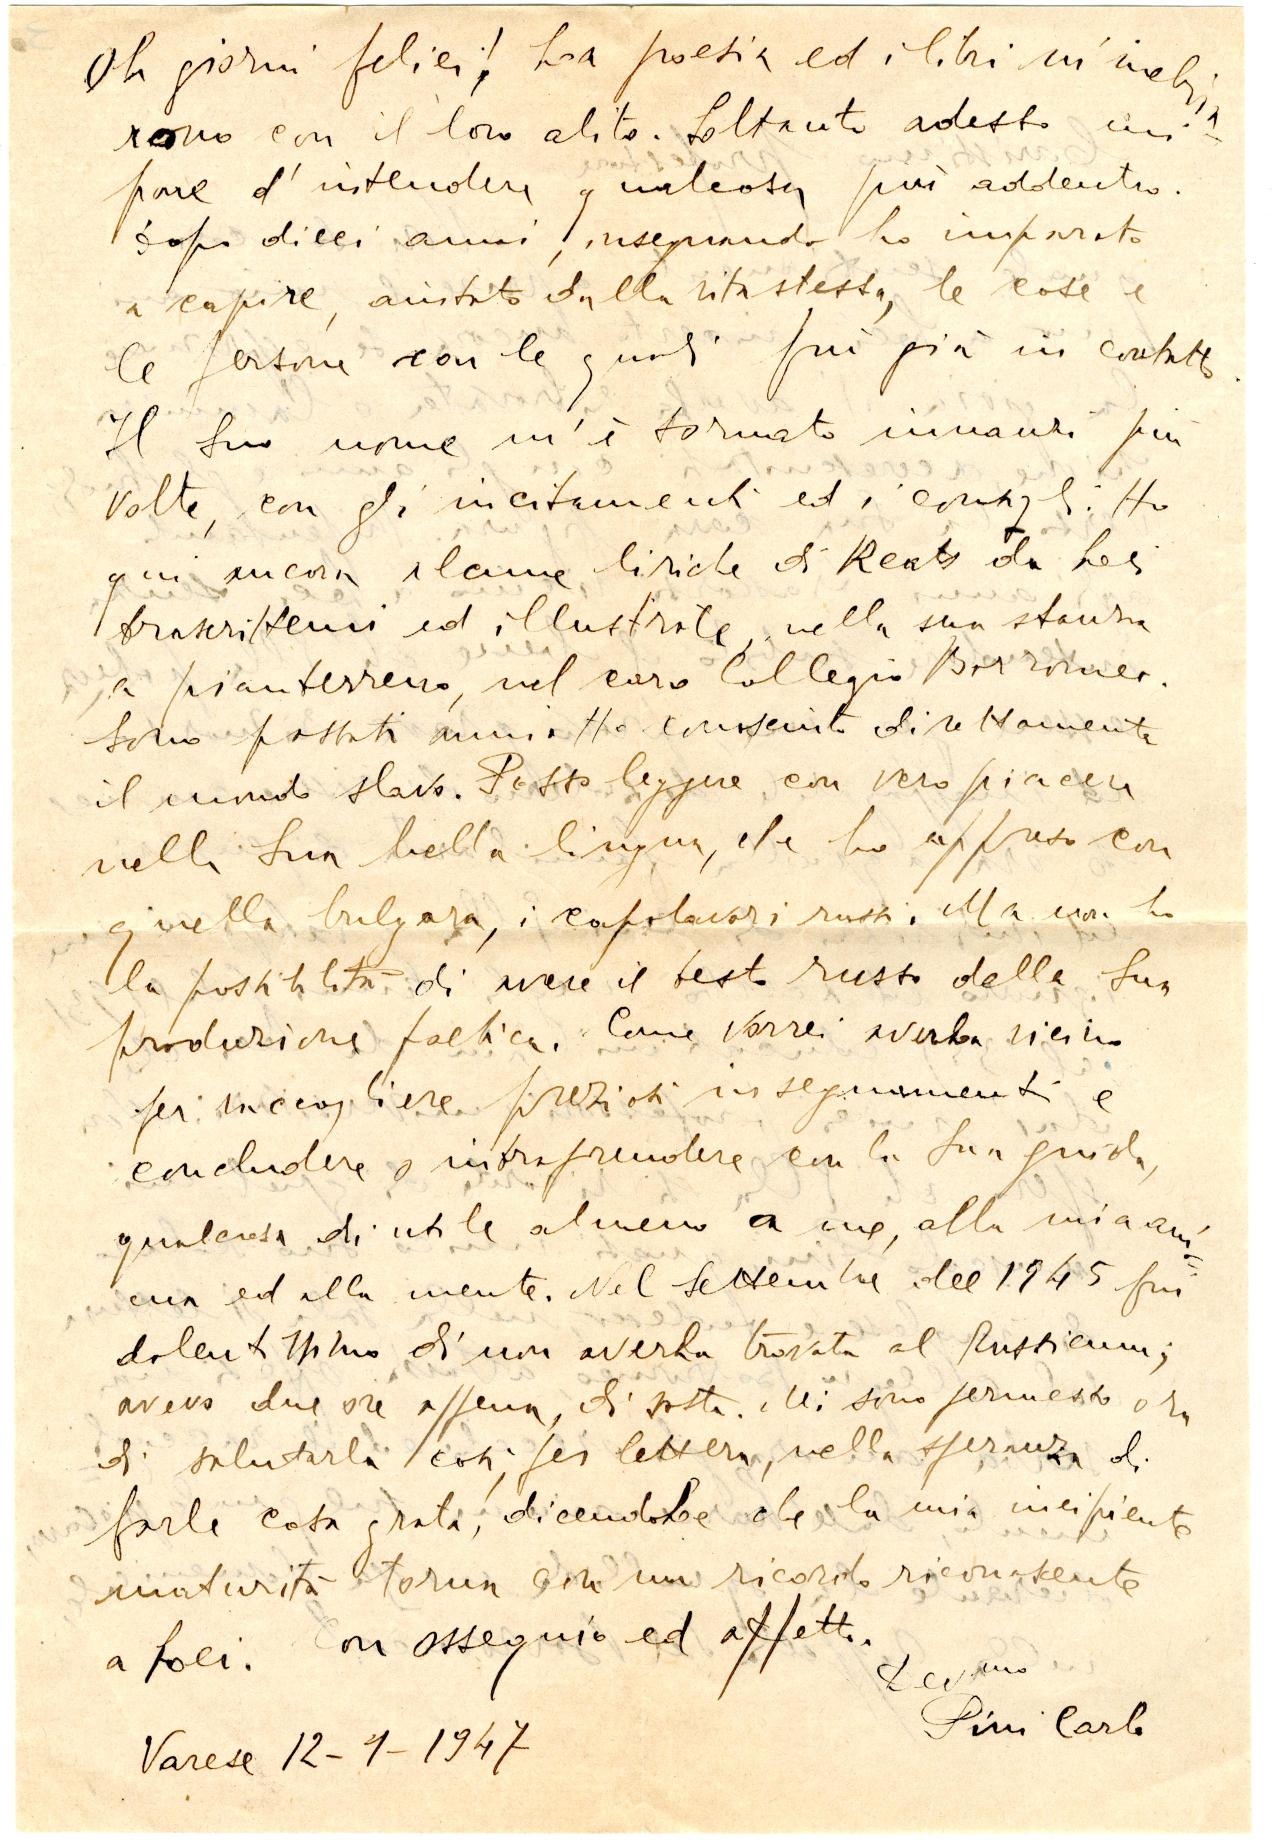 Oh giorni felici! La poesia ed i libri m'inebria-
rono con il loro alito. Soltanto adesso mi
pare d'intendere qualcosa più addentro.
Dopo dieci anni, insegnando ho imparato
a capire, aiutato dalla vita stessa, le cose e
le persone con le quali fui già in contatto.
Il Suo nome m'è tornato innanzi più
volte, con gli incitamenti ed i consigli. Ho
qui ancora alcune liriche di Keats da Lei
trascrittemi ed illustrate, nella sua stanza
a pianterreno, nel caro Collegio Borromeo.
Sono passati anni. Ho conosciuto direttamente
il mondo slavo. Posso leggere con vero piacere
nella Sua bella lingua, che ho appreso con
quella bulgara, i capolavori russi. Ma non ho
la possibilità di avere il testo russo della Sua
produzione poetica. Come vorrei averLa vicino
per raccogliere preziosi insegnamenti e
concludere o intraprendere con la Sua guida,
qualcosa di utile almeno a me, alla mia ani-
ma ed alla mente. Nel Settembre del 1945 fui
dolentissimo di non averLa trovata al Russicum;
avevo due ore appena, di sosta. Mi sono permesso ora
di salutarLa così, per lettera, nella speranza di
farLe cosa grata, dicendoLe che la mia incipiente
maturità torna con un ricordo riconoscente
a Lei. Con ossequio ed affetto.
Dev.mo
Pini Carlo
Varese 12-1-1947